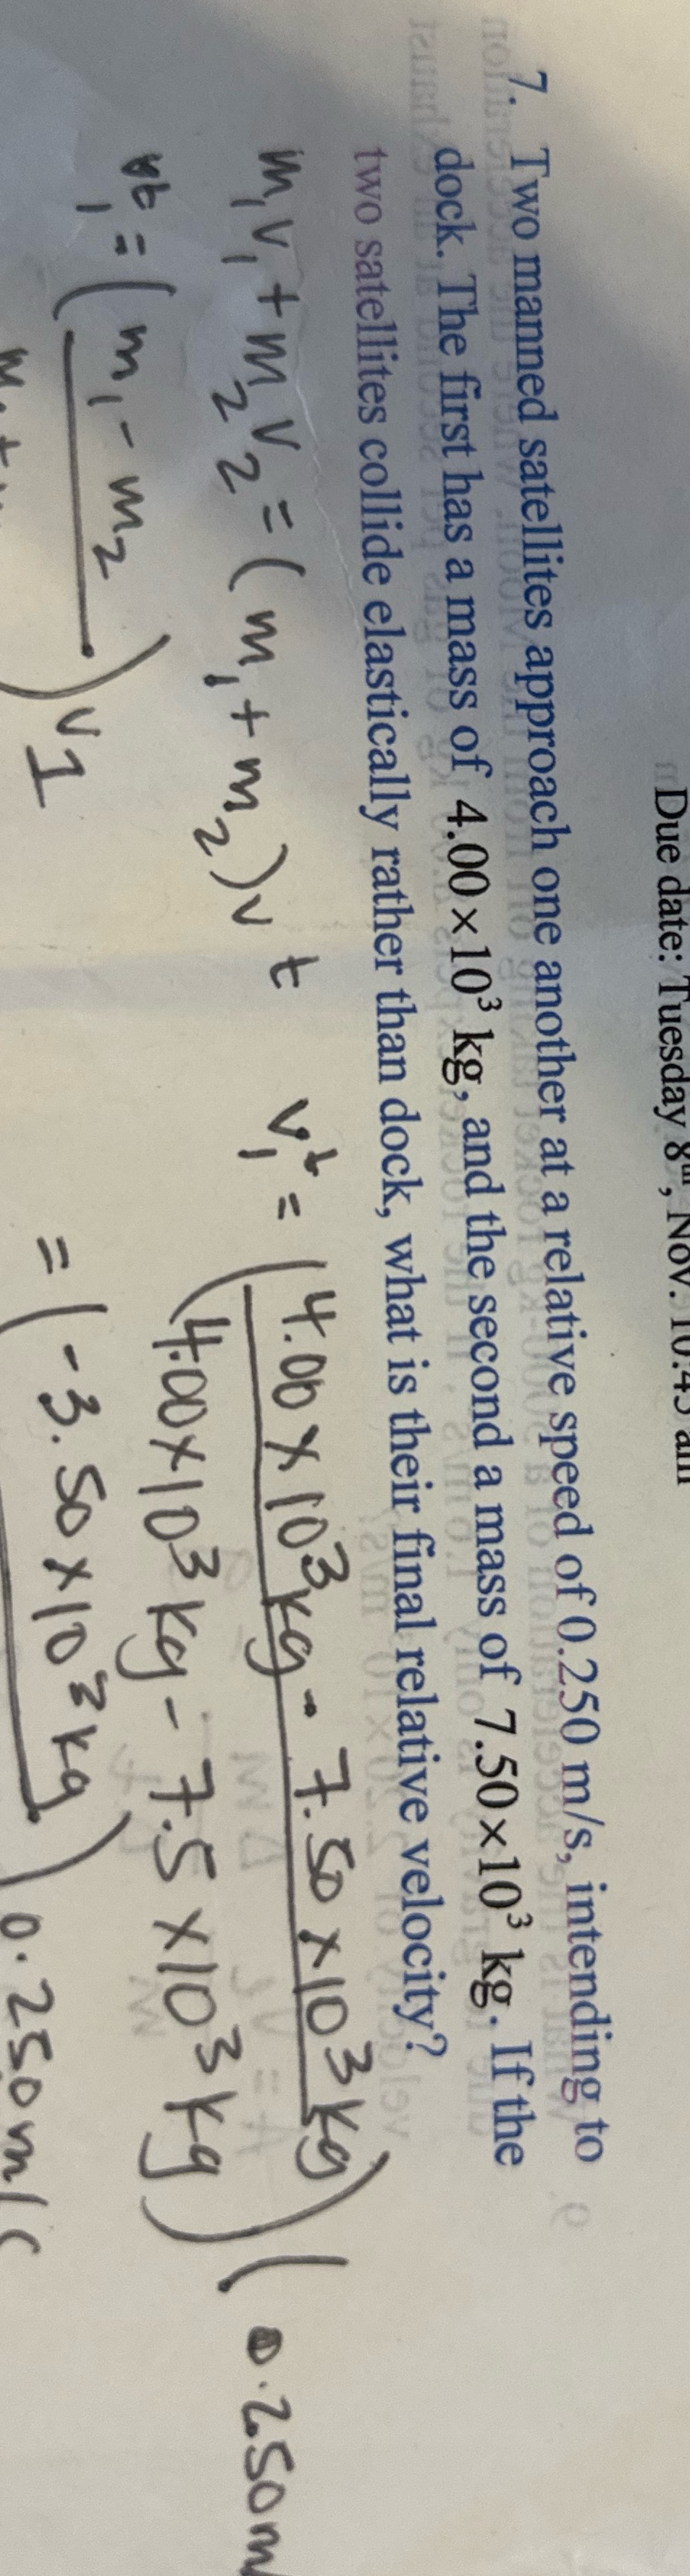 Due date: Tuesday 8th, Nov. 10:45 am
7. Two manned satellites approach one another at a relative speed of 0.250 m/s, intending to
dock. The first has a mass of 4.00×10³ kg, and the second a mass of 7.50×10³ kg. If the
two satellites collide elastically rather than dock, what is their final relative velocity?
m₁v₁+m₂v₂=(m₁+m₂)v t
v₁ᵗ = (4.00×10³kg - 7.50×10³kg
4.00×10³kg - 7.5×10³kg) (0.250m
v₁ᵗ = (m₁-m₂
m₁+) v1
= (-3.50×10³kg) 0.250m/s